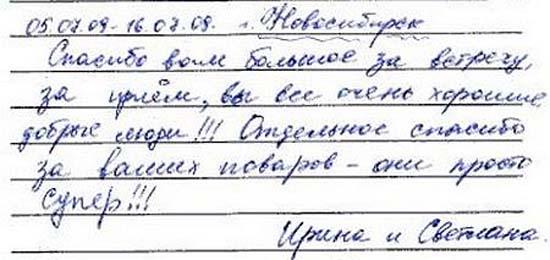 05.07.09-16.07.09. г. Новосибирск
Спасибо вам большое за встречу,
за приём, вы все очень хорошие,
добрые люди!!! Отдельное спасибо
за ваших поваров - они просто
супер!!!
Ирина и Светлана.